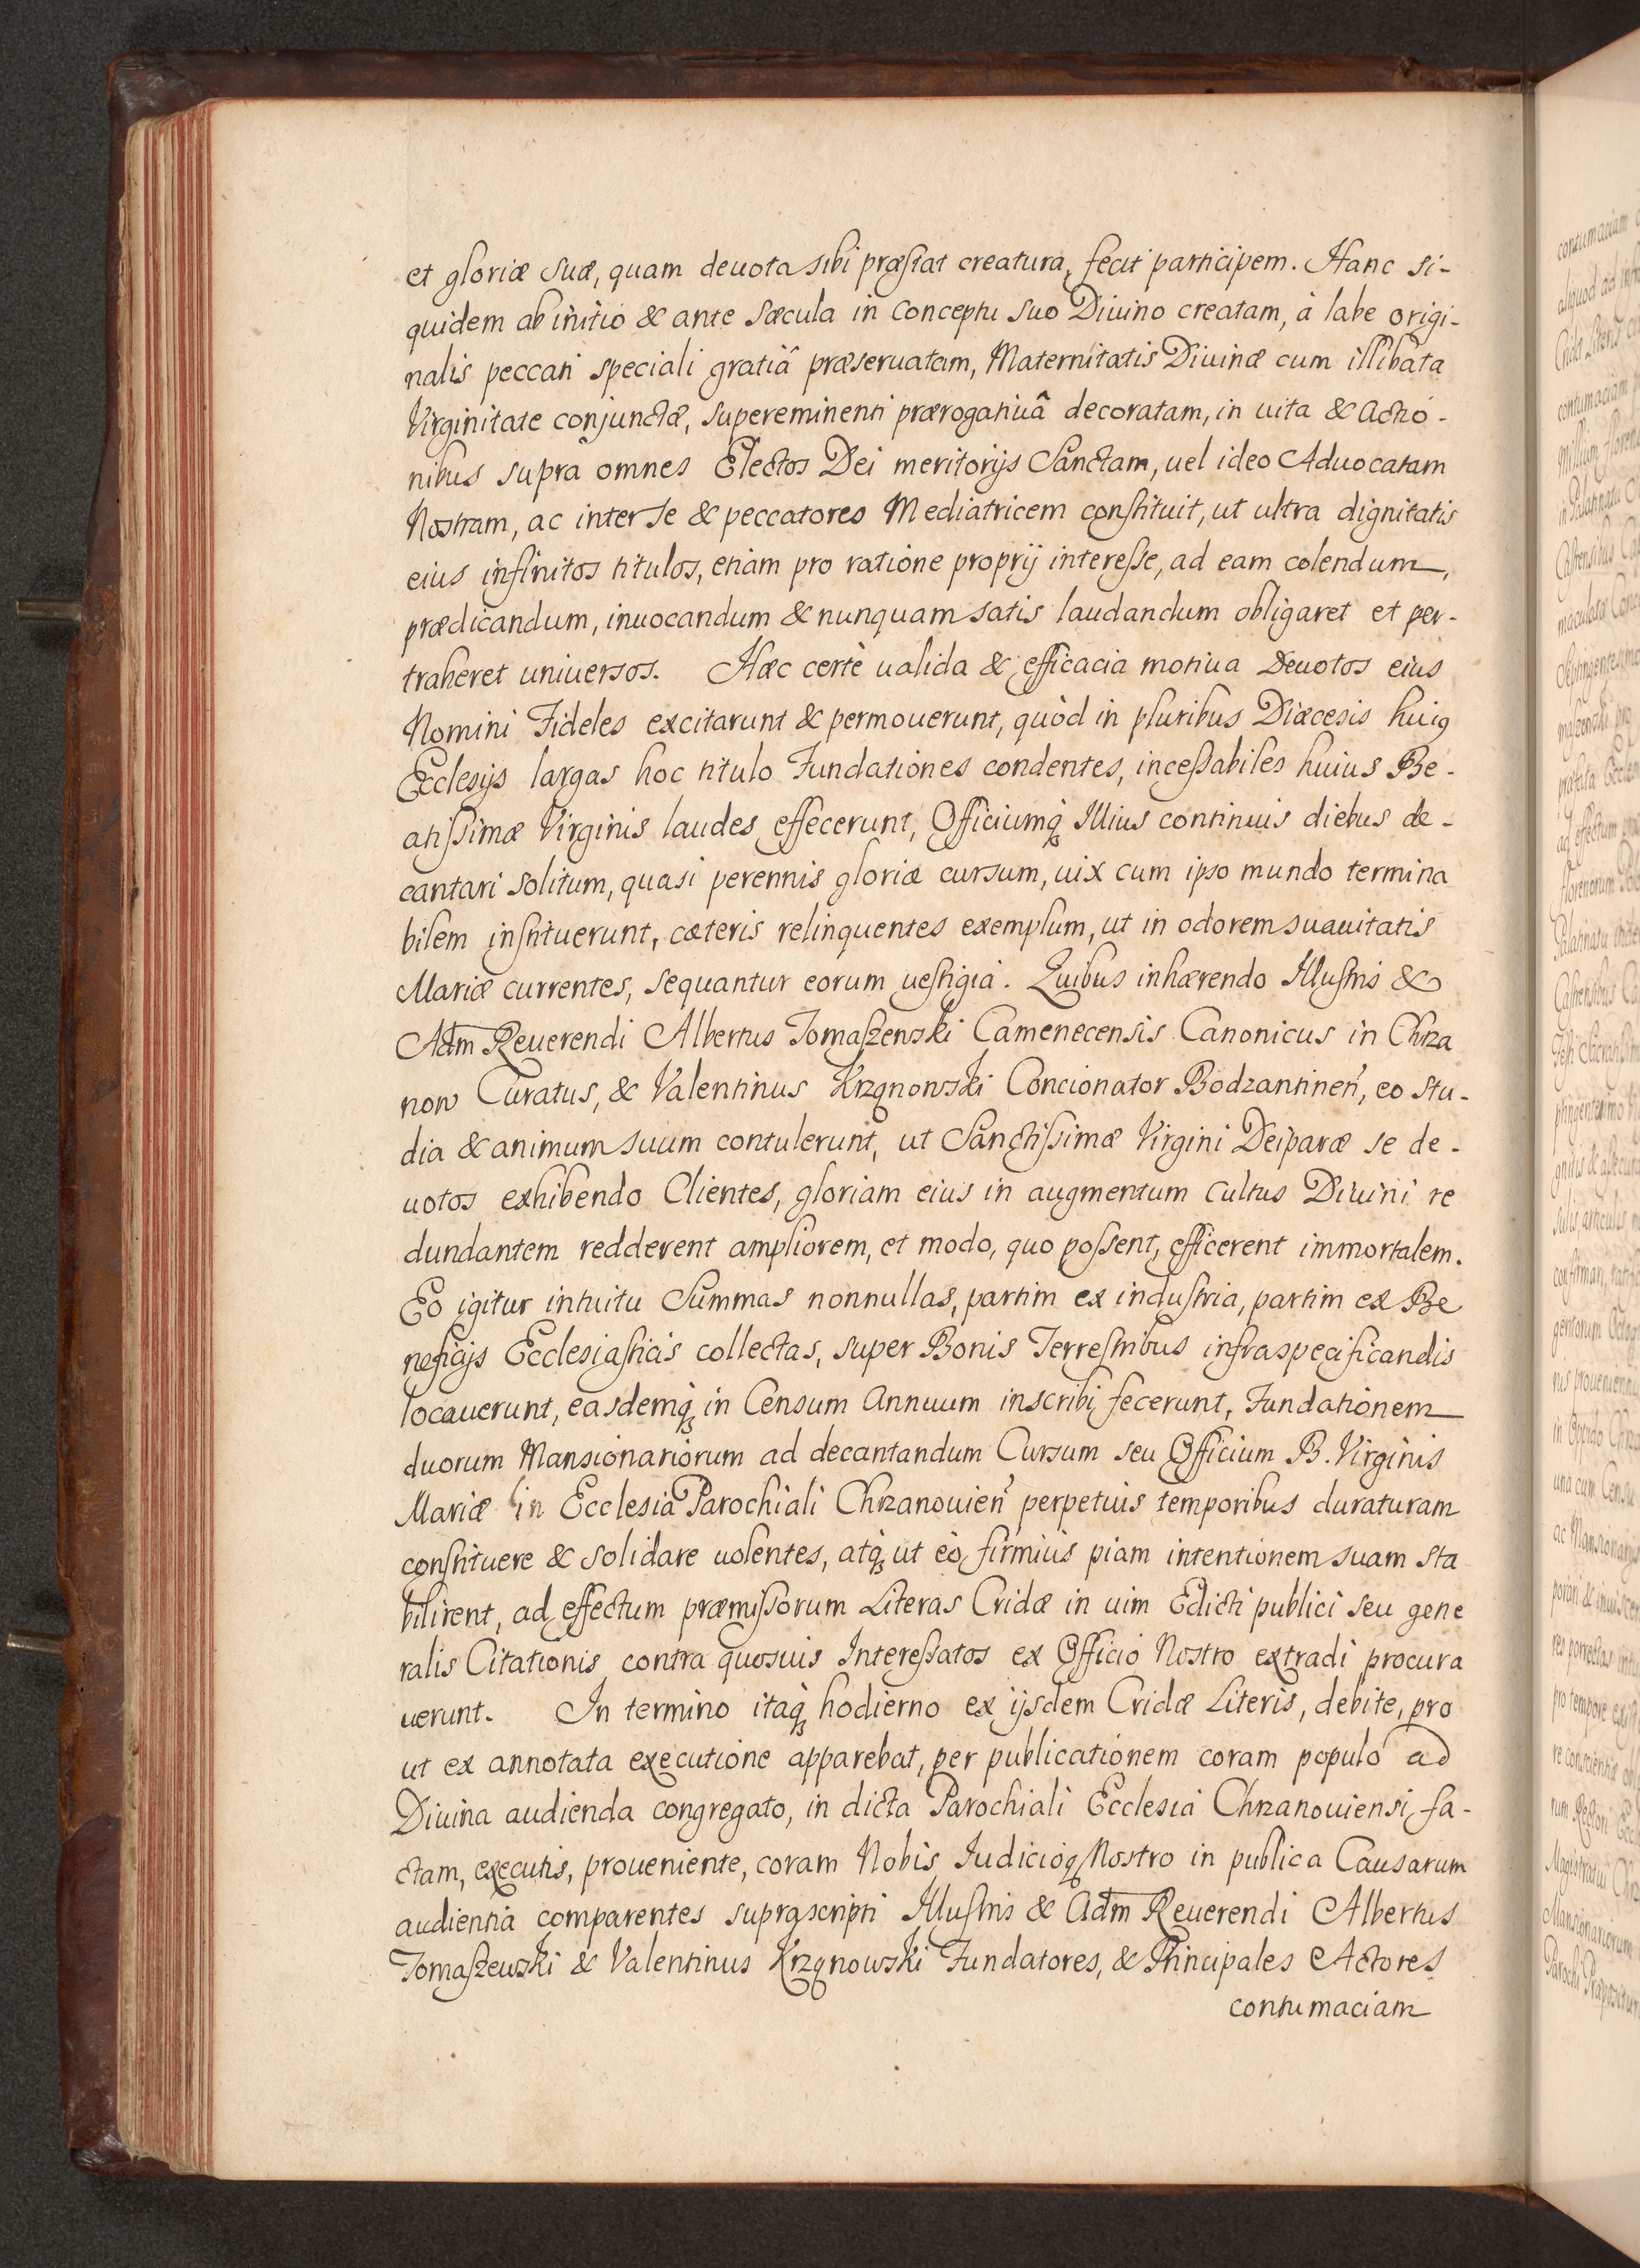 et gloriæ suæ, quam deuota sibi præstat creatura, fecit participem. Hanc si-
quidem ab initio & ante sæcula in conceptu suo Diuino creatam, à labe origi-
nalis peccati speciali gratiâ præseruatam, Maternitatis Diuinæ cum illibata
Virginitate conjunctæ, supereminenti prærogatiuâ decoratam, in uita & actio-
nibus supra omnes Electos Dei meritorijs Sanctam, uel ideo Aduocatam
Nostram, ac inter se & peccatores Mediatricem constituit, ut ultra dignitatis
eius infinitos titulos, etiam pro ratione proprij interesse, ad eam colendum,
prædicandum, inuocandum & nunquam satis laudandum obligaret et per-
traheret uniuersos. Hæc certè ualida & efficacia motiua Deuotos eius
Nomini Fideles excitarunt & permouerunt, quòd in pluribus Diæcesis huiꝯ
Ecclesijs largas hoc titulo Fundationes condentes, incessabiles huius Be-
atissimæ Virginis laudes effecerunt, Officiumq́ Illius continuis diebus de-
cantari solitum, quasi perennis gloriæ cursum, uix cum ipso mundo termina
bilem instituerunt, cæteris relinquentes exemplum, ut in odorem suauitatis
Mariæ currentes, sequantur eorum uestigia. Quibus inhærendo Illustris &
Adm̄ Reuerendi Albertus Tomaszewski Camenecensis Canonicus in Chrza
now Curatus, & Valentinus Krzqnowski Concionator Bodzantineń, eo stu-
dia & animum suum contulerunt, ut Sanctissimæ Virgini Deiparæ se de-
uotos exhibendo Clientes, gloriam eius in augmentum Cultus Diuini re
dundantem redderent ampliorem, et modo, quo possent, efficerent immortalem.
Eo igitur intuitu Summas nonnullas, partim ex industria, partim ex Be
neficijs Ecclesiasticis collectas, super Bonis Terrestribus infraspecificandis
locauerunt, easdemq́ in Censum Annuum inscribi fecerunt, Fundationem
duorum Mansionariorum ad decantandum Cursum seu Officium B. Virginis
Mariæ in Ecclesia Parochiali Chrzanouień perpetuis temporibus duraturam
constituere & solidare uolentes, atq́ ut eò firmius piam intentionem suam sta
bilirent, ad effectum præmissorum Literas Cridæ in uim Edicti publici seu gene
ralis Citationis contra quosuis Interessatos ex Officio Nostro extradi procura
uerunt. In termino itaq́ hodierno ex ijsdem Cridæ Literis, debite, pro
ut ex annotata executione apparebat, per publicationem coram populo ad
Diuina audienda congregato, in dicta Parochiali Ecclesia Chrzanouiensi fa-
ctam, executis, proueniente, coram Nobis Iudicioq́ Nostro in publica Causarum
audientia comparentes suprascripti Illustris & Adm̄ Reuerendi Albertus
Tomaszewski & Valentinus Krzqnowski Fundatores, & Principales Actores
contumaciam